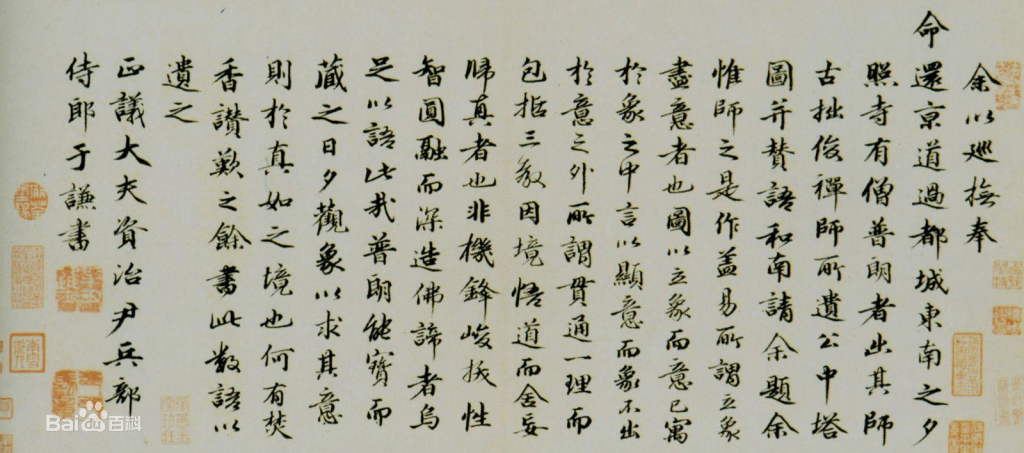 余以巡撫奉
命還京道過都城東南之夕
照寺有僧普朗者出其師
古拙俊禪師所遺公中塔
圖并贊語和南請余題余
惟師之是作蓋易所謂立象
盡意者也圖以立象而意已寓
於象之中言以顯意而象不出
於意之外所謂貫通一理而
包括三教因境悟道而舍妄
歸真者也非機鋒峻拔性
智圓融而深造佛諦者烏
足以語此哉普朗能寶而
藏之日夕觀象以求其意
則於真如之境也何有焚
香讃歎之餘書此數語以
遺之
正議大夫資治尹兵部
侍郎于謙書
Bai百科